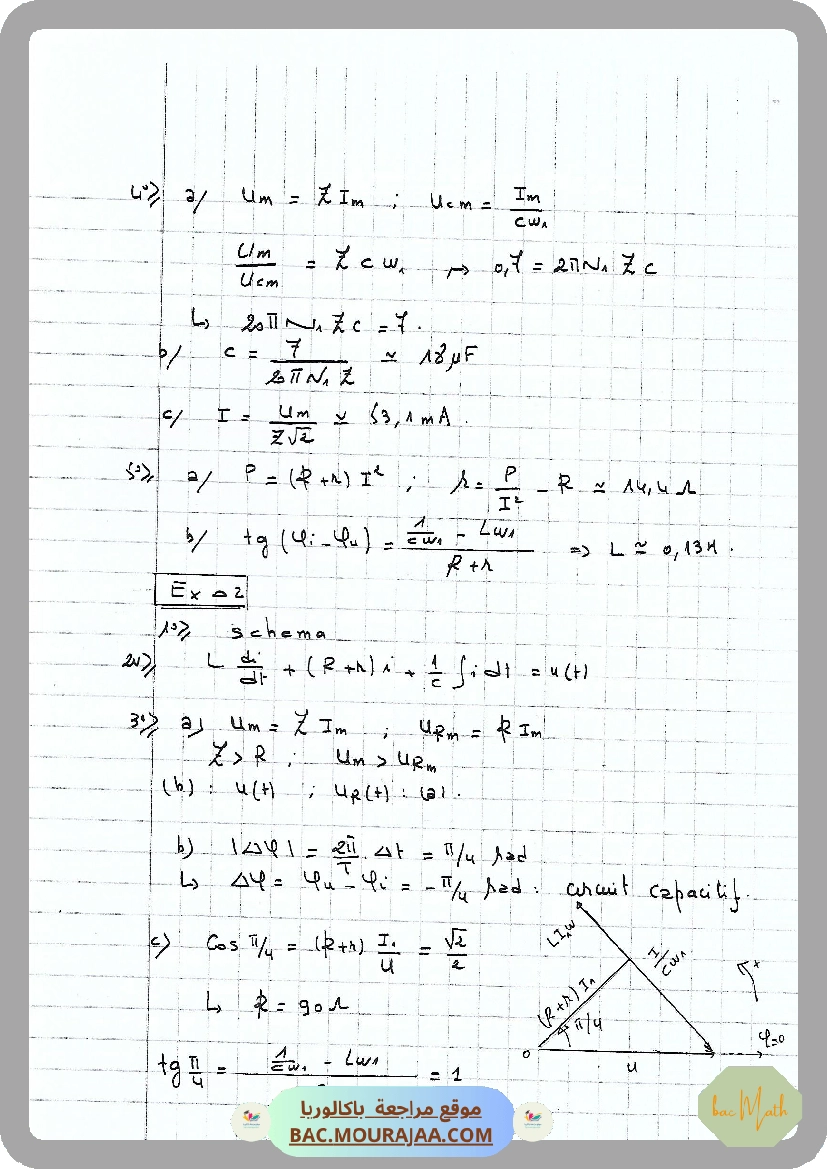 4°) a/ Um = Z Im ; Ucm = Im / cω₁
Um / Ucm = Z c ω₁ ↦ 0,7 = 2πN₁ Z c
↳ 20π N₁ Z c = 7.
b/ c = 7 / 20πN₁ Z ≃ 18 µF
c/ I = Um / Z√2 ≃ 53,1 mA.
5°) a/ P = (R+r) I² ; r = P / I² - R ≃ 14,4 Ω
b/ tg (φi - φu) = (1/cω₁ - Lω₁) / (R+r) ⇒ L ≃ 0,13H.
Ex ▵ 2
1°) schema
2°) L di/dt + (R+r) i + 1/c ∫ i dt = u(t)
3°) a) Um = Z Im ; URm = R Im
Z > R ; Um > URm
(b) : u(t) ; uR(t) : (a).
b) |Δφ| = 2π/T . Δt = π/4 rad
↳ Δφ = φu - φi = -π/4 rad : circuit capacitif.
c) Cos π/4 = (R+r) I₁/U = √2/2
↳ R = 90 Ω
tg π/4 = 1/cω₁ - Lω₁ = 1
L I₁ω
I/cω₁
(R+r) I₁
π/4
+
φ=0
o
u
موقع مراجعة باكالوريا
BAC.MOURAJAA.COM
bac Math